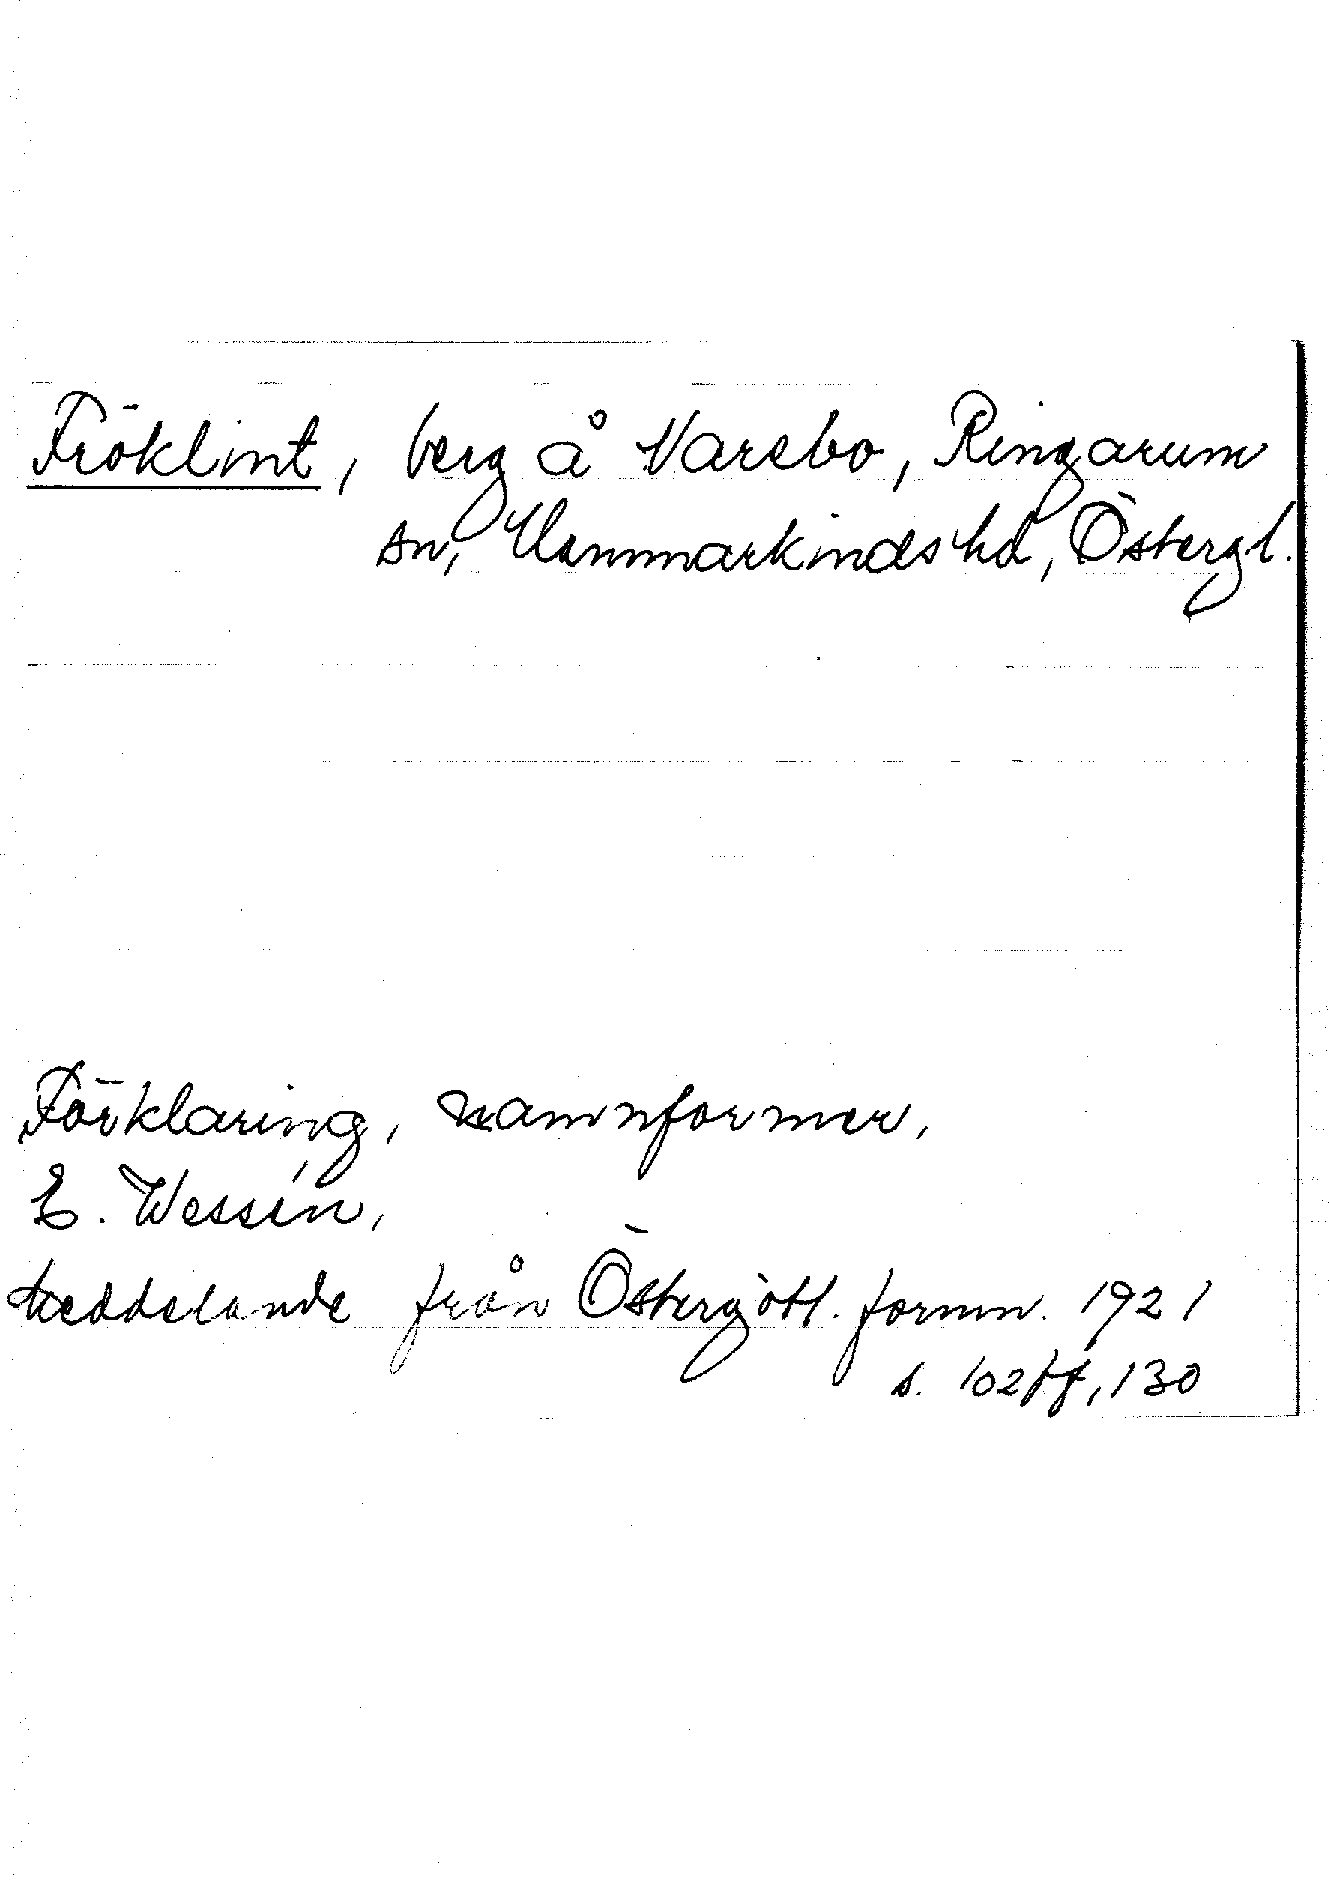 Fröklint, berg å Varebo, Ringarum
sn, Hammarkinds hd, Östergl.
Förklaring, namnformer,
E. Wessén,
Meddelande från Östergötl. fornm. 1921
s. 102 ff, 130